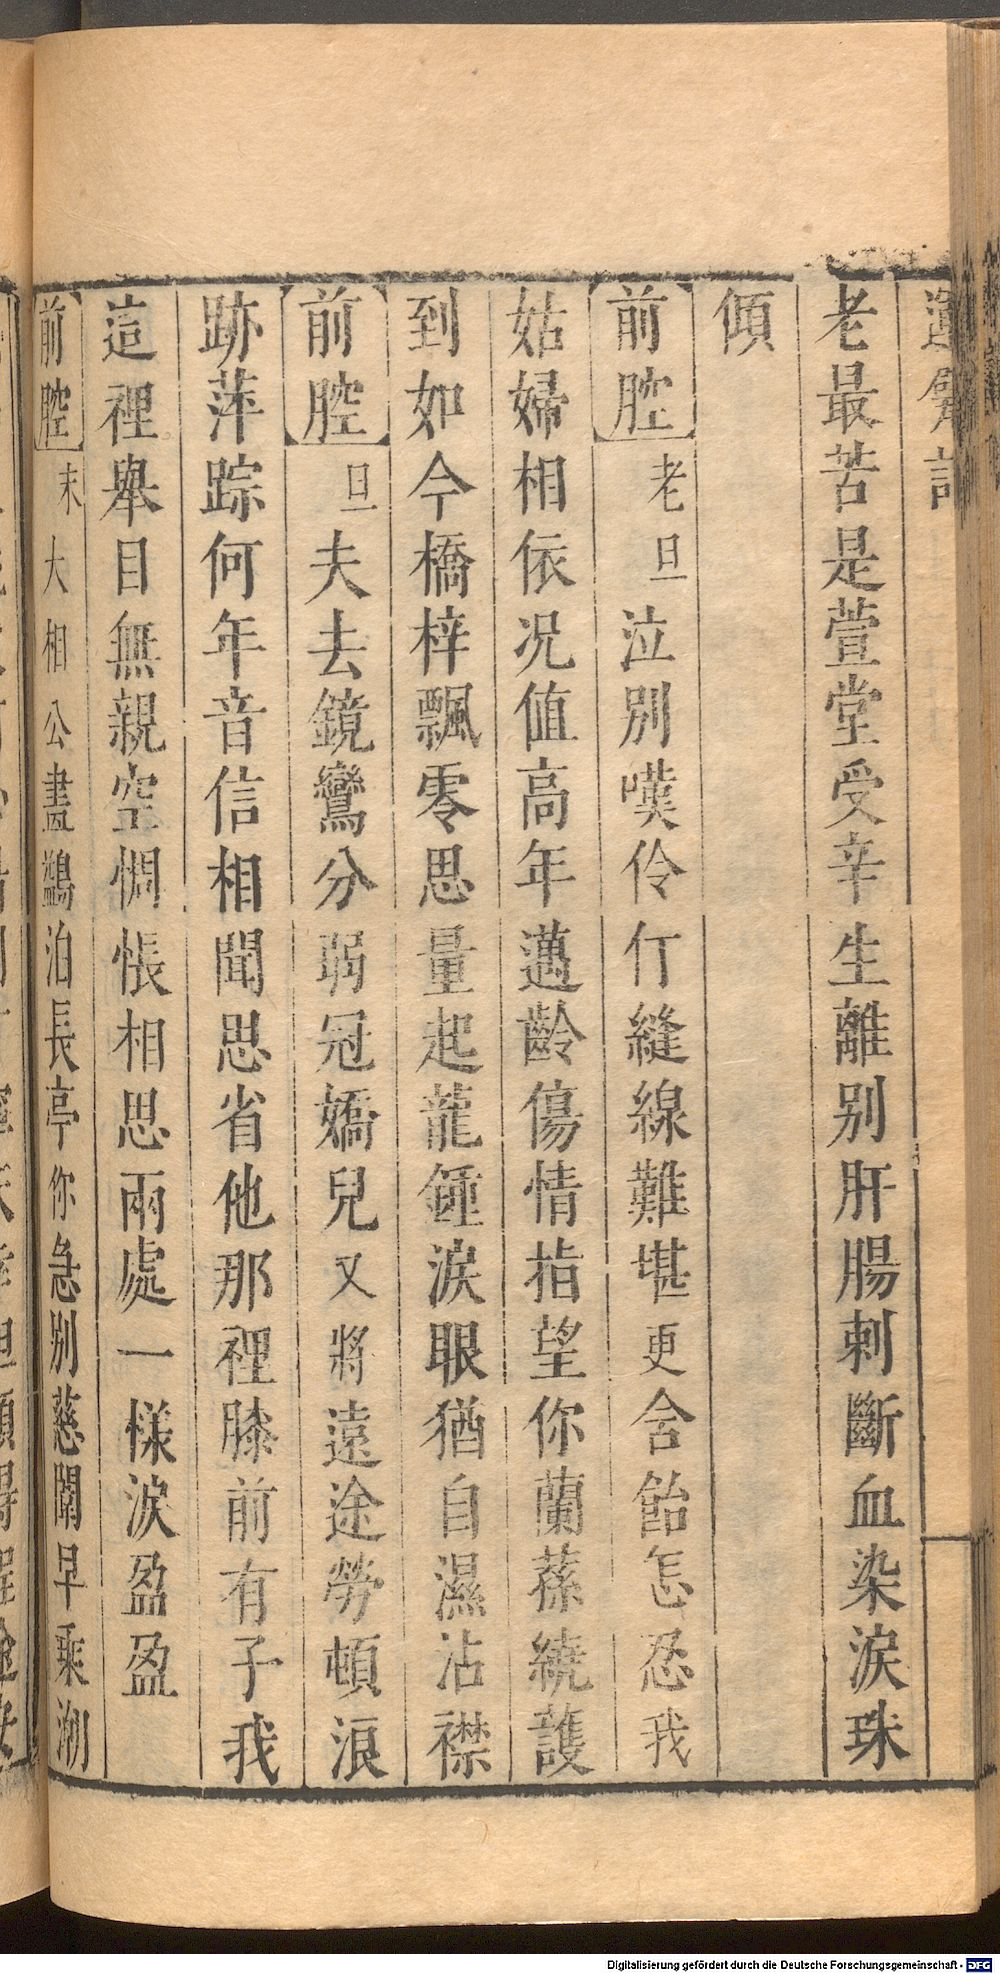 老最苦是萱堂受辛生離别肝腸剌斷血染淚珠
傾
前腔老旦泣别嘆伶仃縫線難堪更含飴怎忍我
姑婦相依况值高年邁齡傷情指望你蘭蓀繞護
到如今橋梓飄零思量起龍鍾淚眼猶自濕沾襟
前腔旦夫去鏡鸞分弱冠嬌兒又將遠途勞頓浪
跡萍踪何年音信相聞思省他那裡膝前有子我
這裡舉目無親空惆悵相思兩處一樣淚盈盈
前腔末大相公畫鷁泊長亭你急别慈闈早乘潮
Digitalisierung gefördert durch die Deutsche Forschungsgemeinschaft - DFG